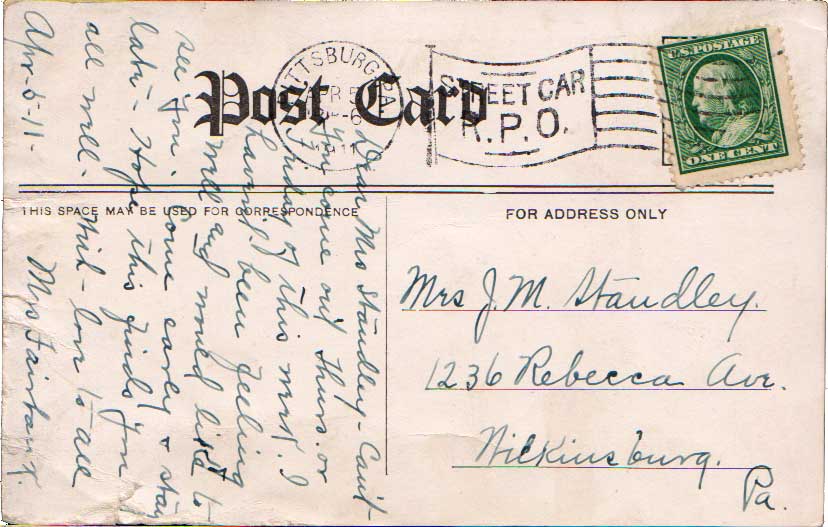 Post Card
PITTSBURG, PA.
APR 5
6
1911
STREET CAR
R.P.O.
U.S. POSTAGE
ONE CENT
THIS SPACE MAY BE USED FOR CORRESPONDENCE
FOR ADDRESS ONLY
Mrs J. M. Standley.
1236 Rebecca Ave.
Wilkinsburg.
Pa.
Dear Mrs Standley - Can't
you come out Thurs. or
Friday of this week. I
havent been feeling
well and would like to
see you. Come early & stay
late - Hope this finds you
all well. With love to all
Apr-5-11- Mrs